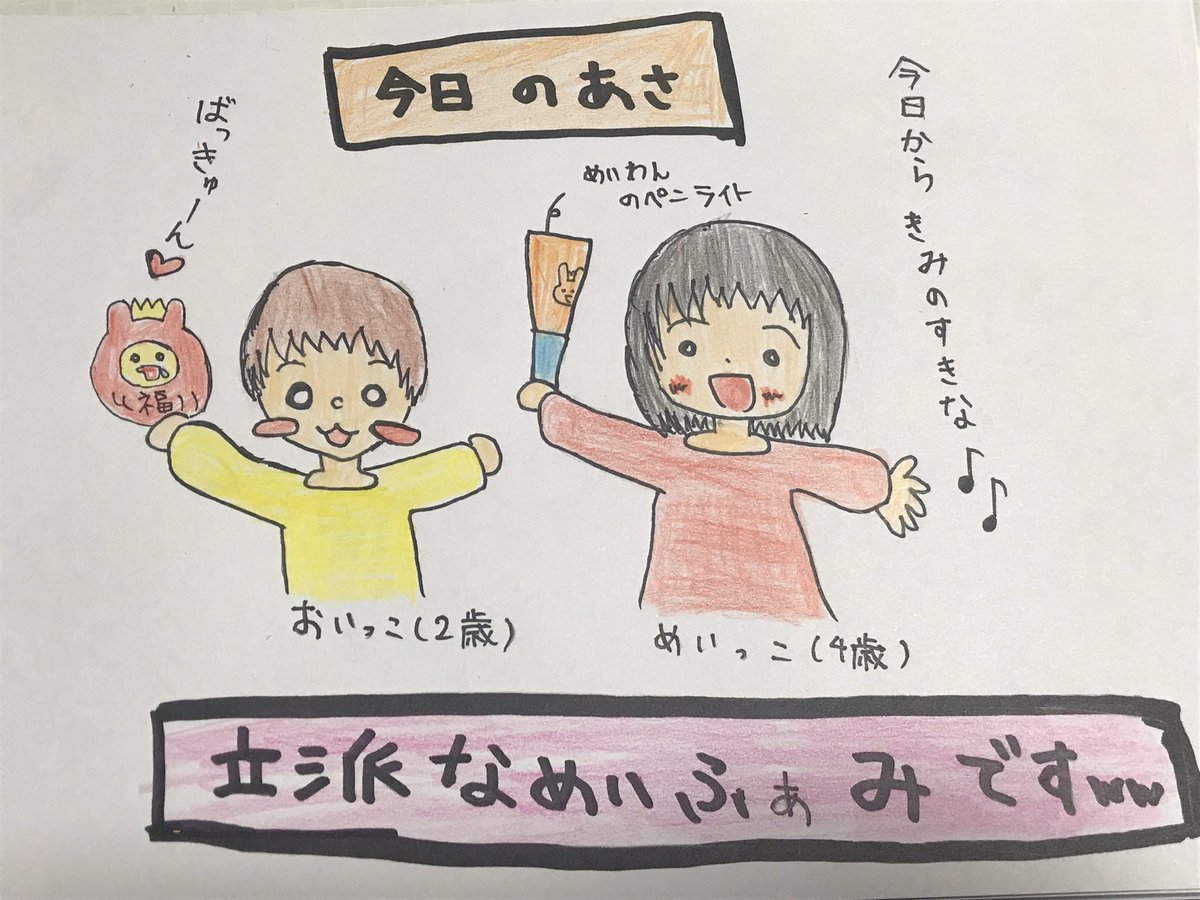 今日のあさ
今日からきみのすきな
めいわん
のペンライト
ばっきゅーん
福
おいっこ(2歳)
めいっこ(4歳)
立派なめいふぁみですww